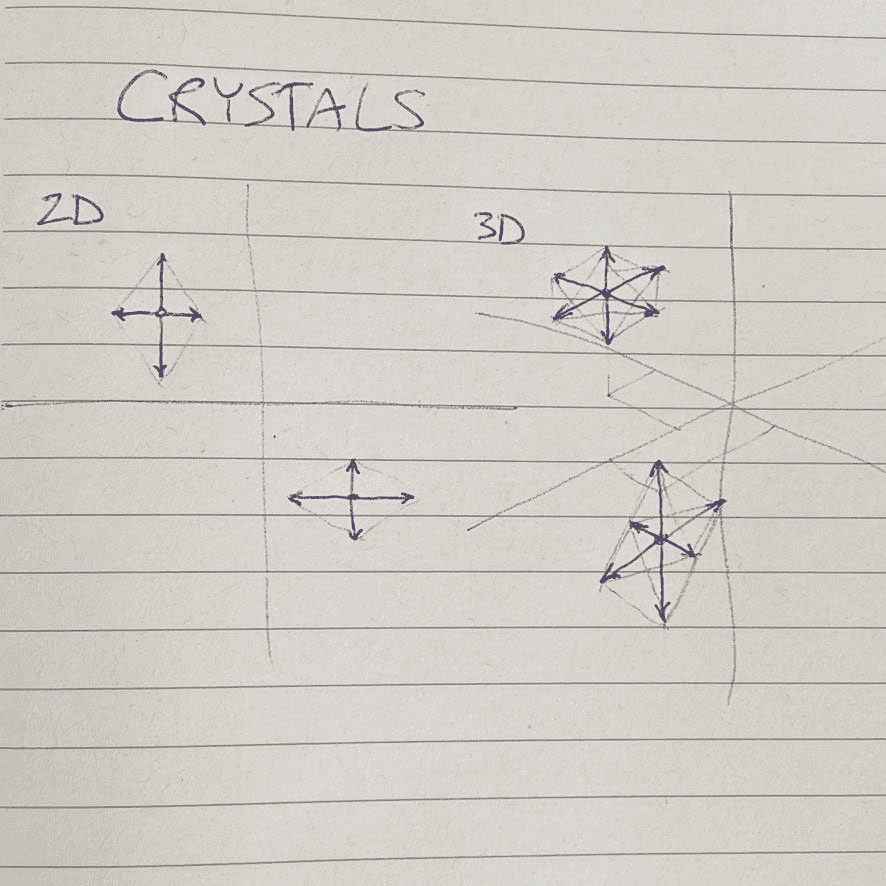 CRYSTALS
2D
3D